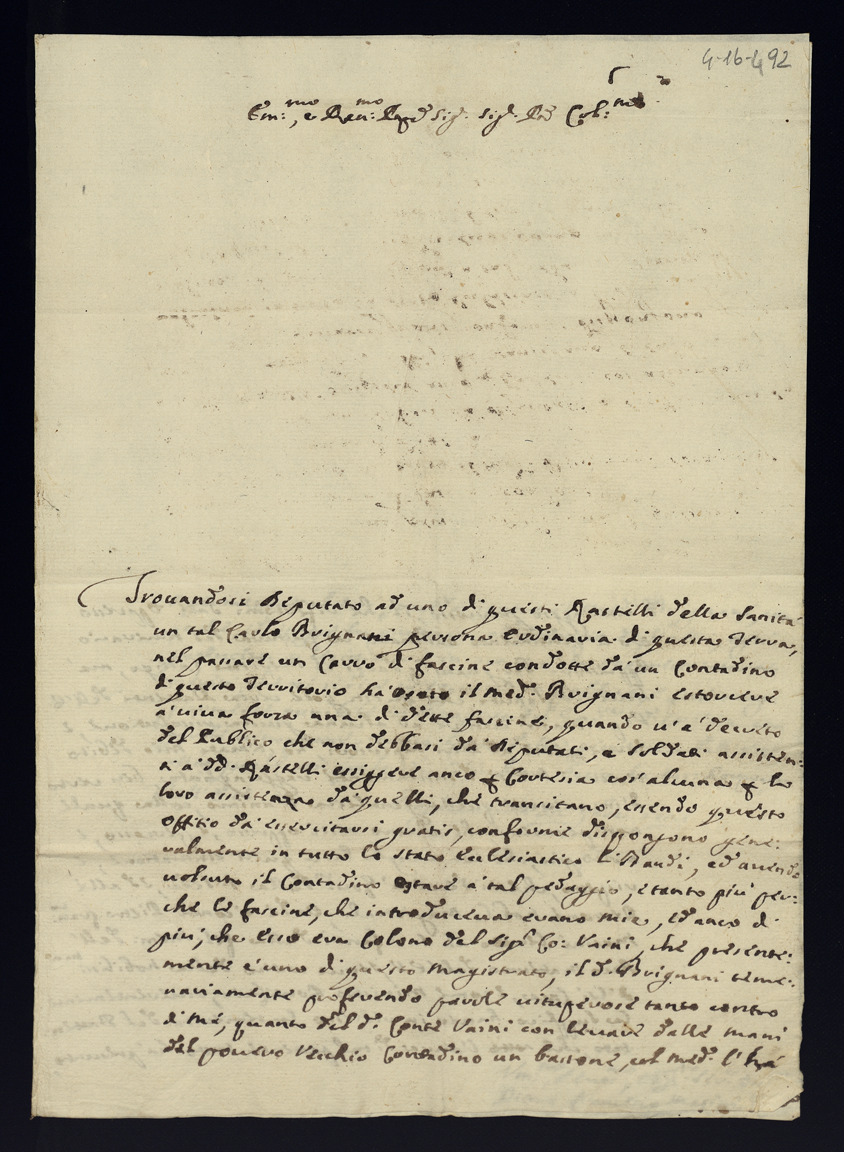 4-16-492
Em:mo, e Reu:mo Sig.r Sig.r Col:mo
Trouandosi Deputato ad uno di questi Rastelli della Sanità
un tal Carlo Brignani persona ordinaria di questa Terra,
nel passare un Carro di fascine condotte da un Contadino
di questo Territorio hà osato il med.o Brignani estorcere
à uiua forza una di dette fascine, quando u'è decreto
del Publico che non debbasi dà Deputati, e Soldati assisten:
ti à dd. Rastelli essiggere anco p Cortesia cos'alcuna p la
loro assistenza dà quelli, che transitano, essendo questo
offitio dà essercitarsi gratis, conforme dispongono gene:
ralmente in tutto lo Stato Eclesiastico i Bandi, ed auendo
uoluto il Contadino ostare à tal pedaggio, e tanto più per:
che le fascine, che introduceua erano mie, ed anco di
più, che esso era Colono del Sig.r Co: Vaini, che presente:
mente è uno di questo Magistrato, il d.o Brignani teme:
rariamente proferendo parole uituperose tanto contro
di mè, quanto del d.o Conte Vaini con leuare dalle mani
del pouero Vecchio Contadino un bastone, col med.o l'hà